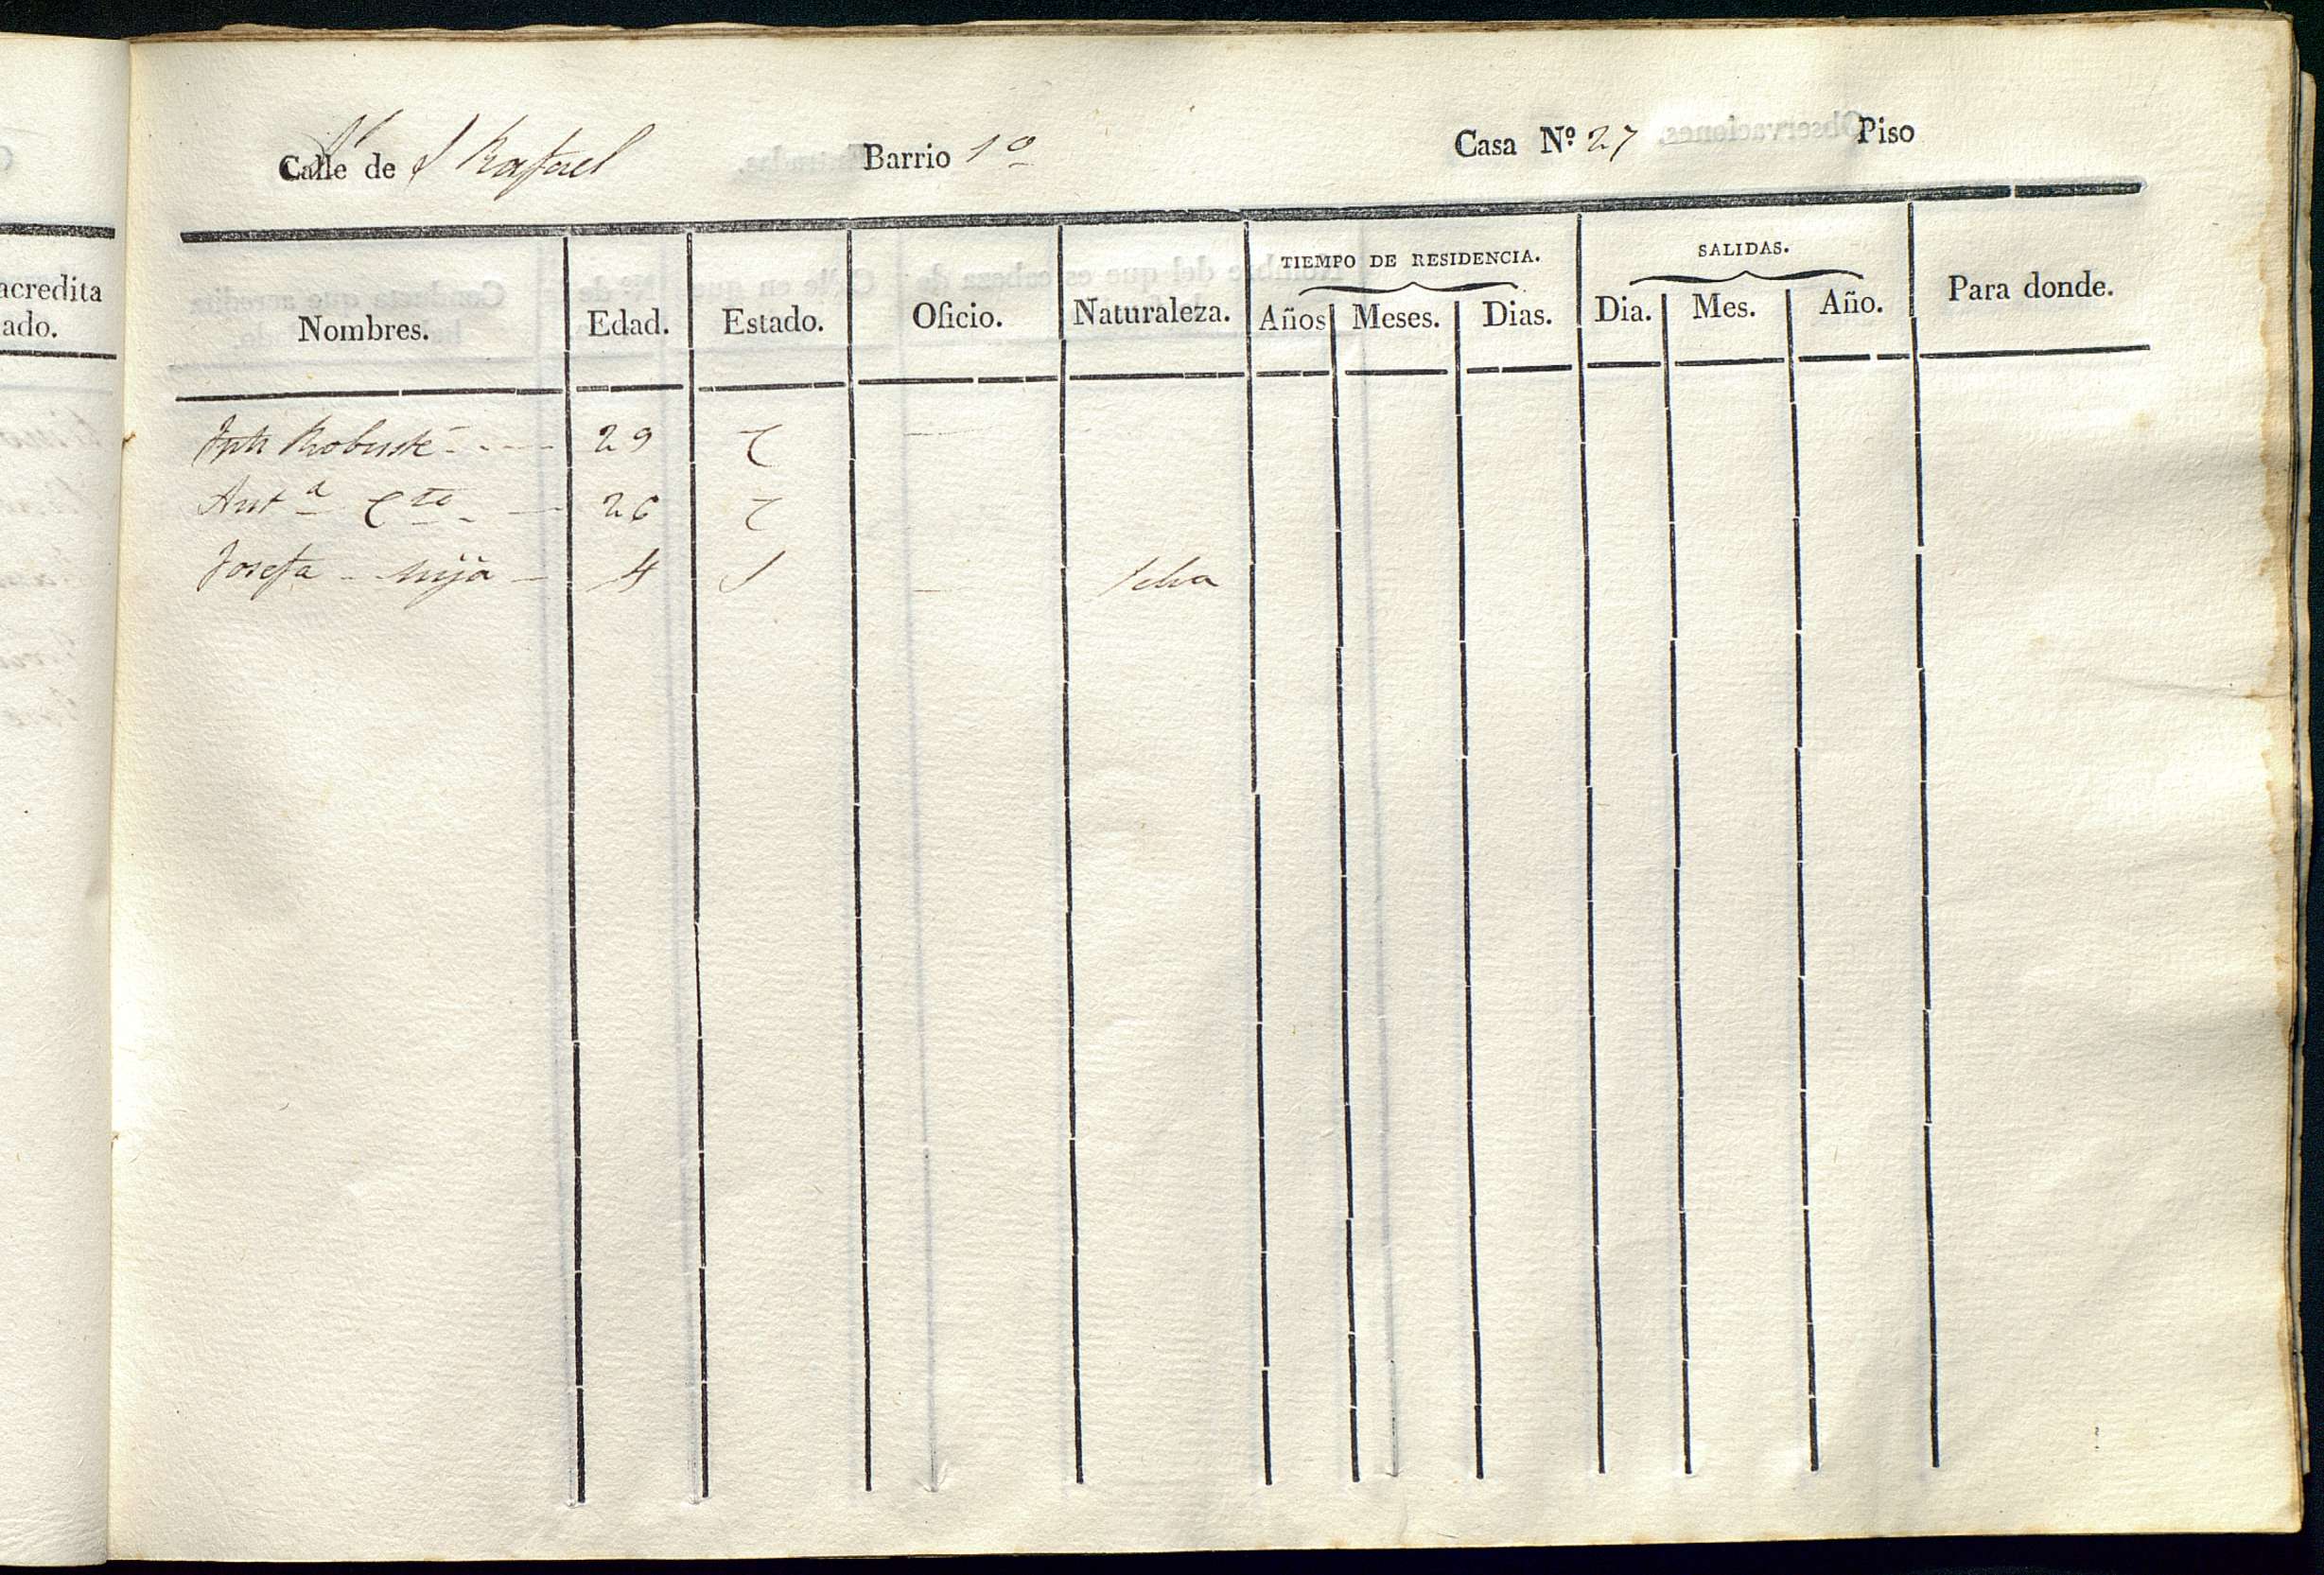 acredita
ado.
Calle de S Rafael Barrio 1º Casa Nº 27 Piso
TIEMPO DE RESIDENCIA. SALIDAS.
Nombres. Edad. Estado. Oficio. Naturaleza. Años Meses. Dias. Dia. Mes. Año. Para donde.
Robuste 29 C
Antª 26 C
Josefa hija 4 S Selva